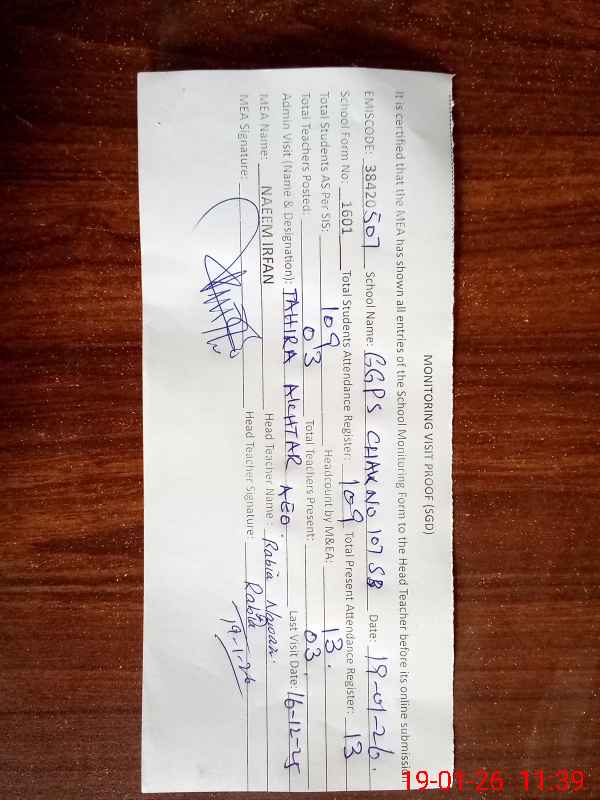 MONITORING VISIT PROOF (SGD)
It is certified that the MEA has shown all entries of the School Monitoring Form to the Head Teacher before its online submission
EMISCODE: 38420507 School Name: GGPS CHAK NO 107 SB Date: 19-01-26.
School Form No: 1601 Total Students Attendance Register: 109 Total Present Attendance Register: 13
Total Students AS Per SIS: 109 Headcount by M&EA: 13.
Total Teachers Posted: 03 Total Teachers Present: 03.
Admin Visit (Name & Designation): TAHIRA AKHTAR AEO. Last Visit Date: 16-12-25
MEA Name: NAEEM IRFAN Head Teacher Name: Rabia
MEA Signature: Head Teacher Signature: Rabia
19-1-26
19-01-26 11:39